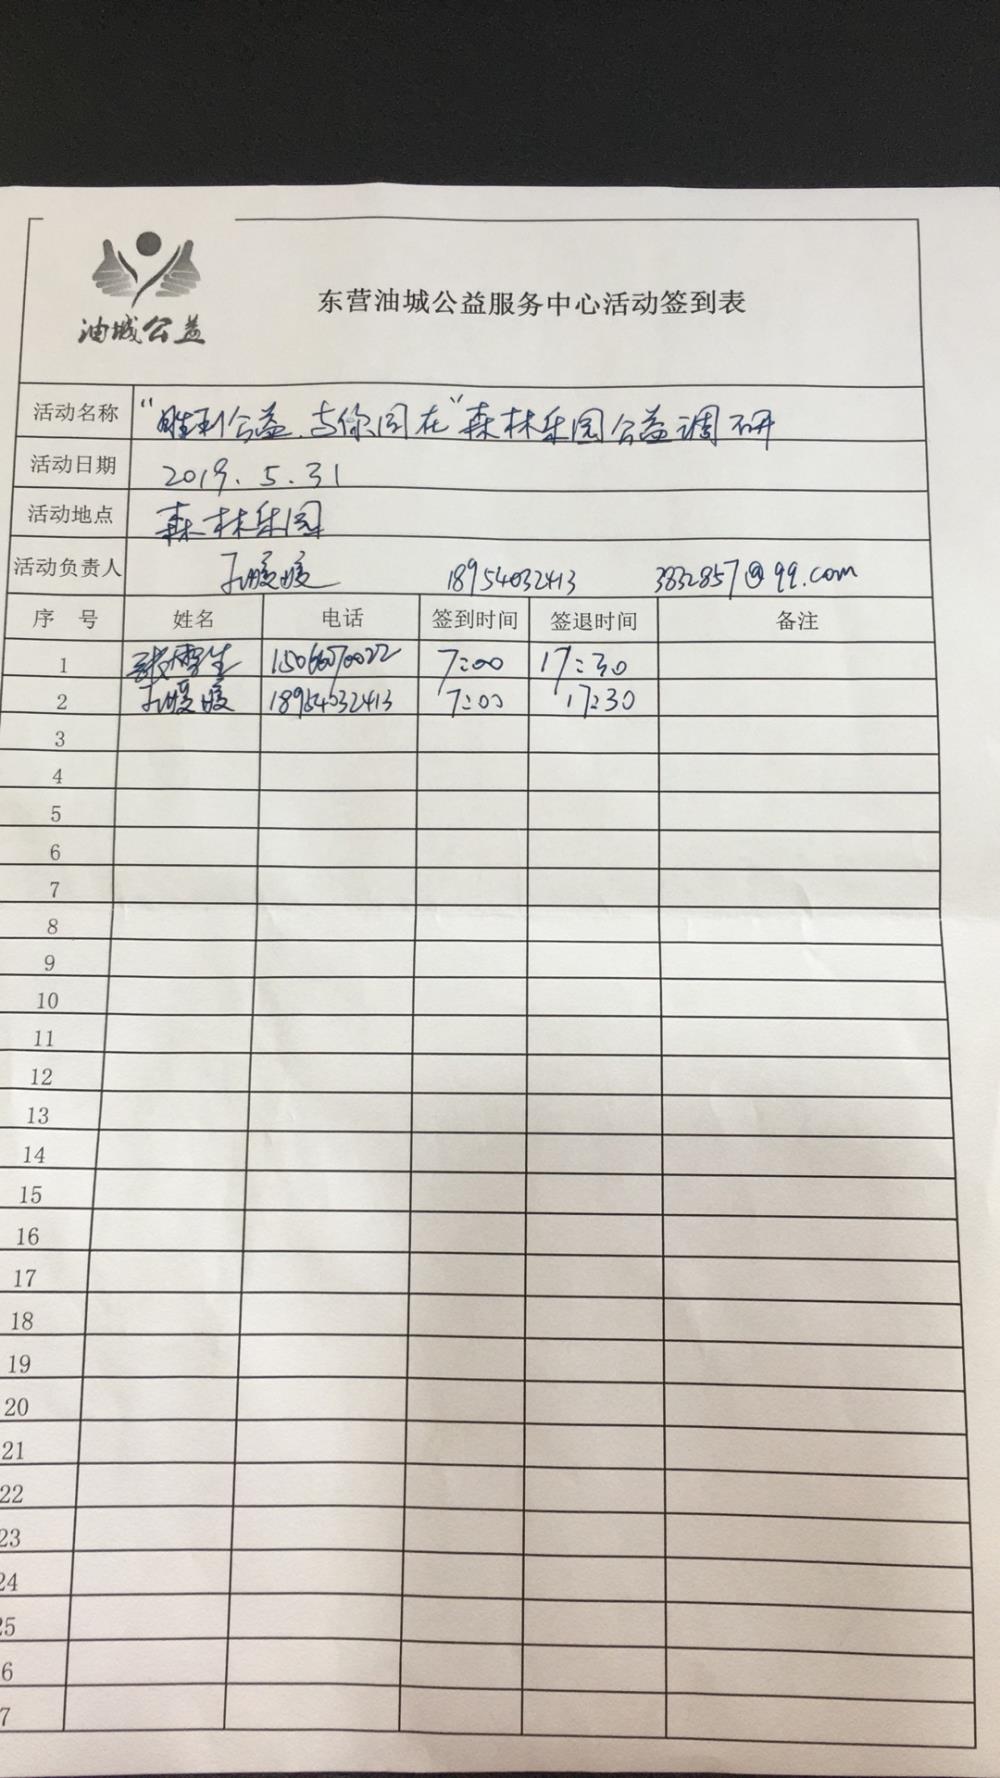 油城公益
东营油城公益服务中心活动签到表
活动名称 "胜利公益、与你同在"森林乐园公益调研
活动日期 2019.5.31
活动地点 森林乐园
活动负责人 孔暖暖 18954032413 3832857@qq.com
序 号 姓名 电话 签到时间 签退时间 备注
1 7:00 17:30
2 孔暖暖 18954032413 7:00 17:30
3
4
5
6
7
8
9
10
11
12
13
14
15
16
17
18
19
20
21
22
23
24
25
6
7